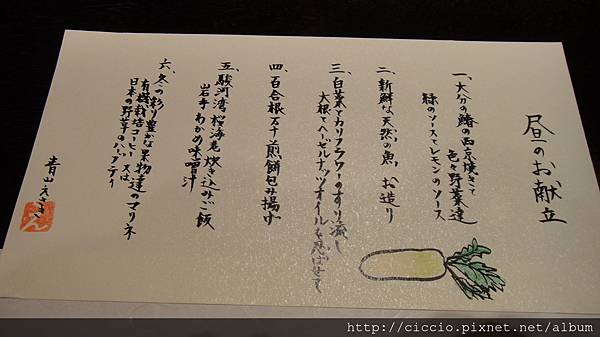 昼のお献立
一、大分の鰆の西京焼きと
色々野菜達
緑のソースとレモンのソース
二、新鮮な天然の魚 お造り
三、白菜とカリフラワーのすり流し
大根とヘーゼルナッツオイルを忍ばせて
四、百合根万十煎餅包み揚げ
五、駿河湾桜海老炊き込みご飯
岩手わかめの味噌汁
六、冬の彩り豊かな果物達のマリネ
有機栽培コーヒー 又は
日本の野草のハーブティ
青山えさき
え
http://ciccio.pixnet.net/album